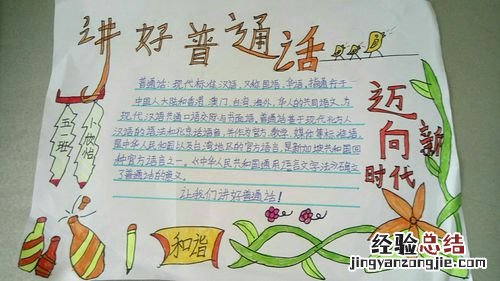 讲好普通话
普通话:现代标准汉语,又称国语,华语,指通行于
中国人大陆和香港,澳门,台省,海外,华人的共同语文,为
现代汉语共通口语交际与书面语,普通话基于现代北方人
汉语的语法和北京话语音,并作为官方,教学,媒体等标准语,
是中华人民和国以及台湾地区的官方语言,是新加坡共和国四
种官方语言之一。《中华人民共和国通用语言文字法》确立
了普通话的意义。
让我们讲好普通话!
五二班
小欣怡
迈向新时代
和谐
经验总结
jingyanzongjie.com